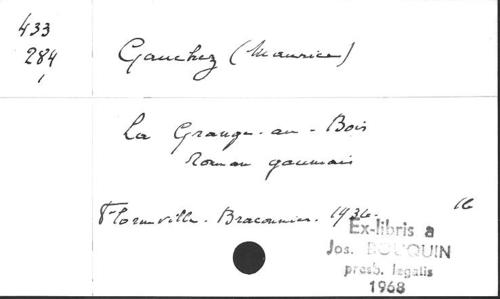 433
284
Gauchez (Maurice)
La Grange-au-Bois
roman gaumais
Florenville. Braconnier. 1934. 16
Ex-libris a
Jos. BOUQUIN
presb. legatis
1968